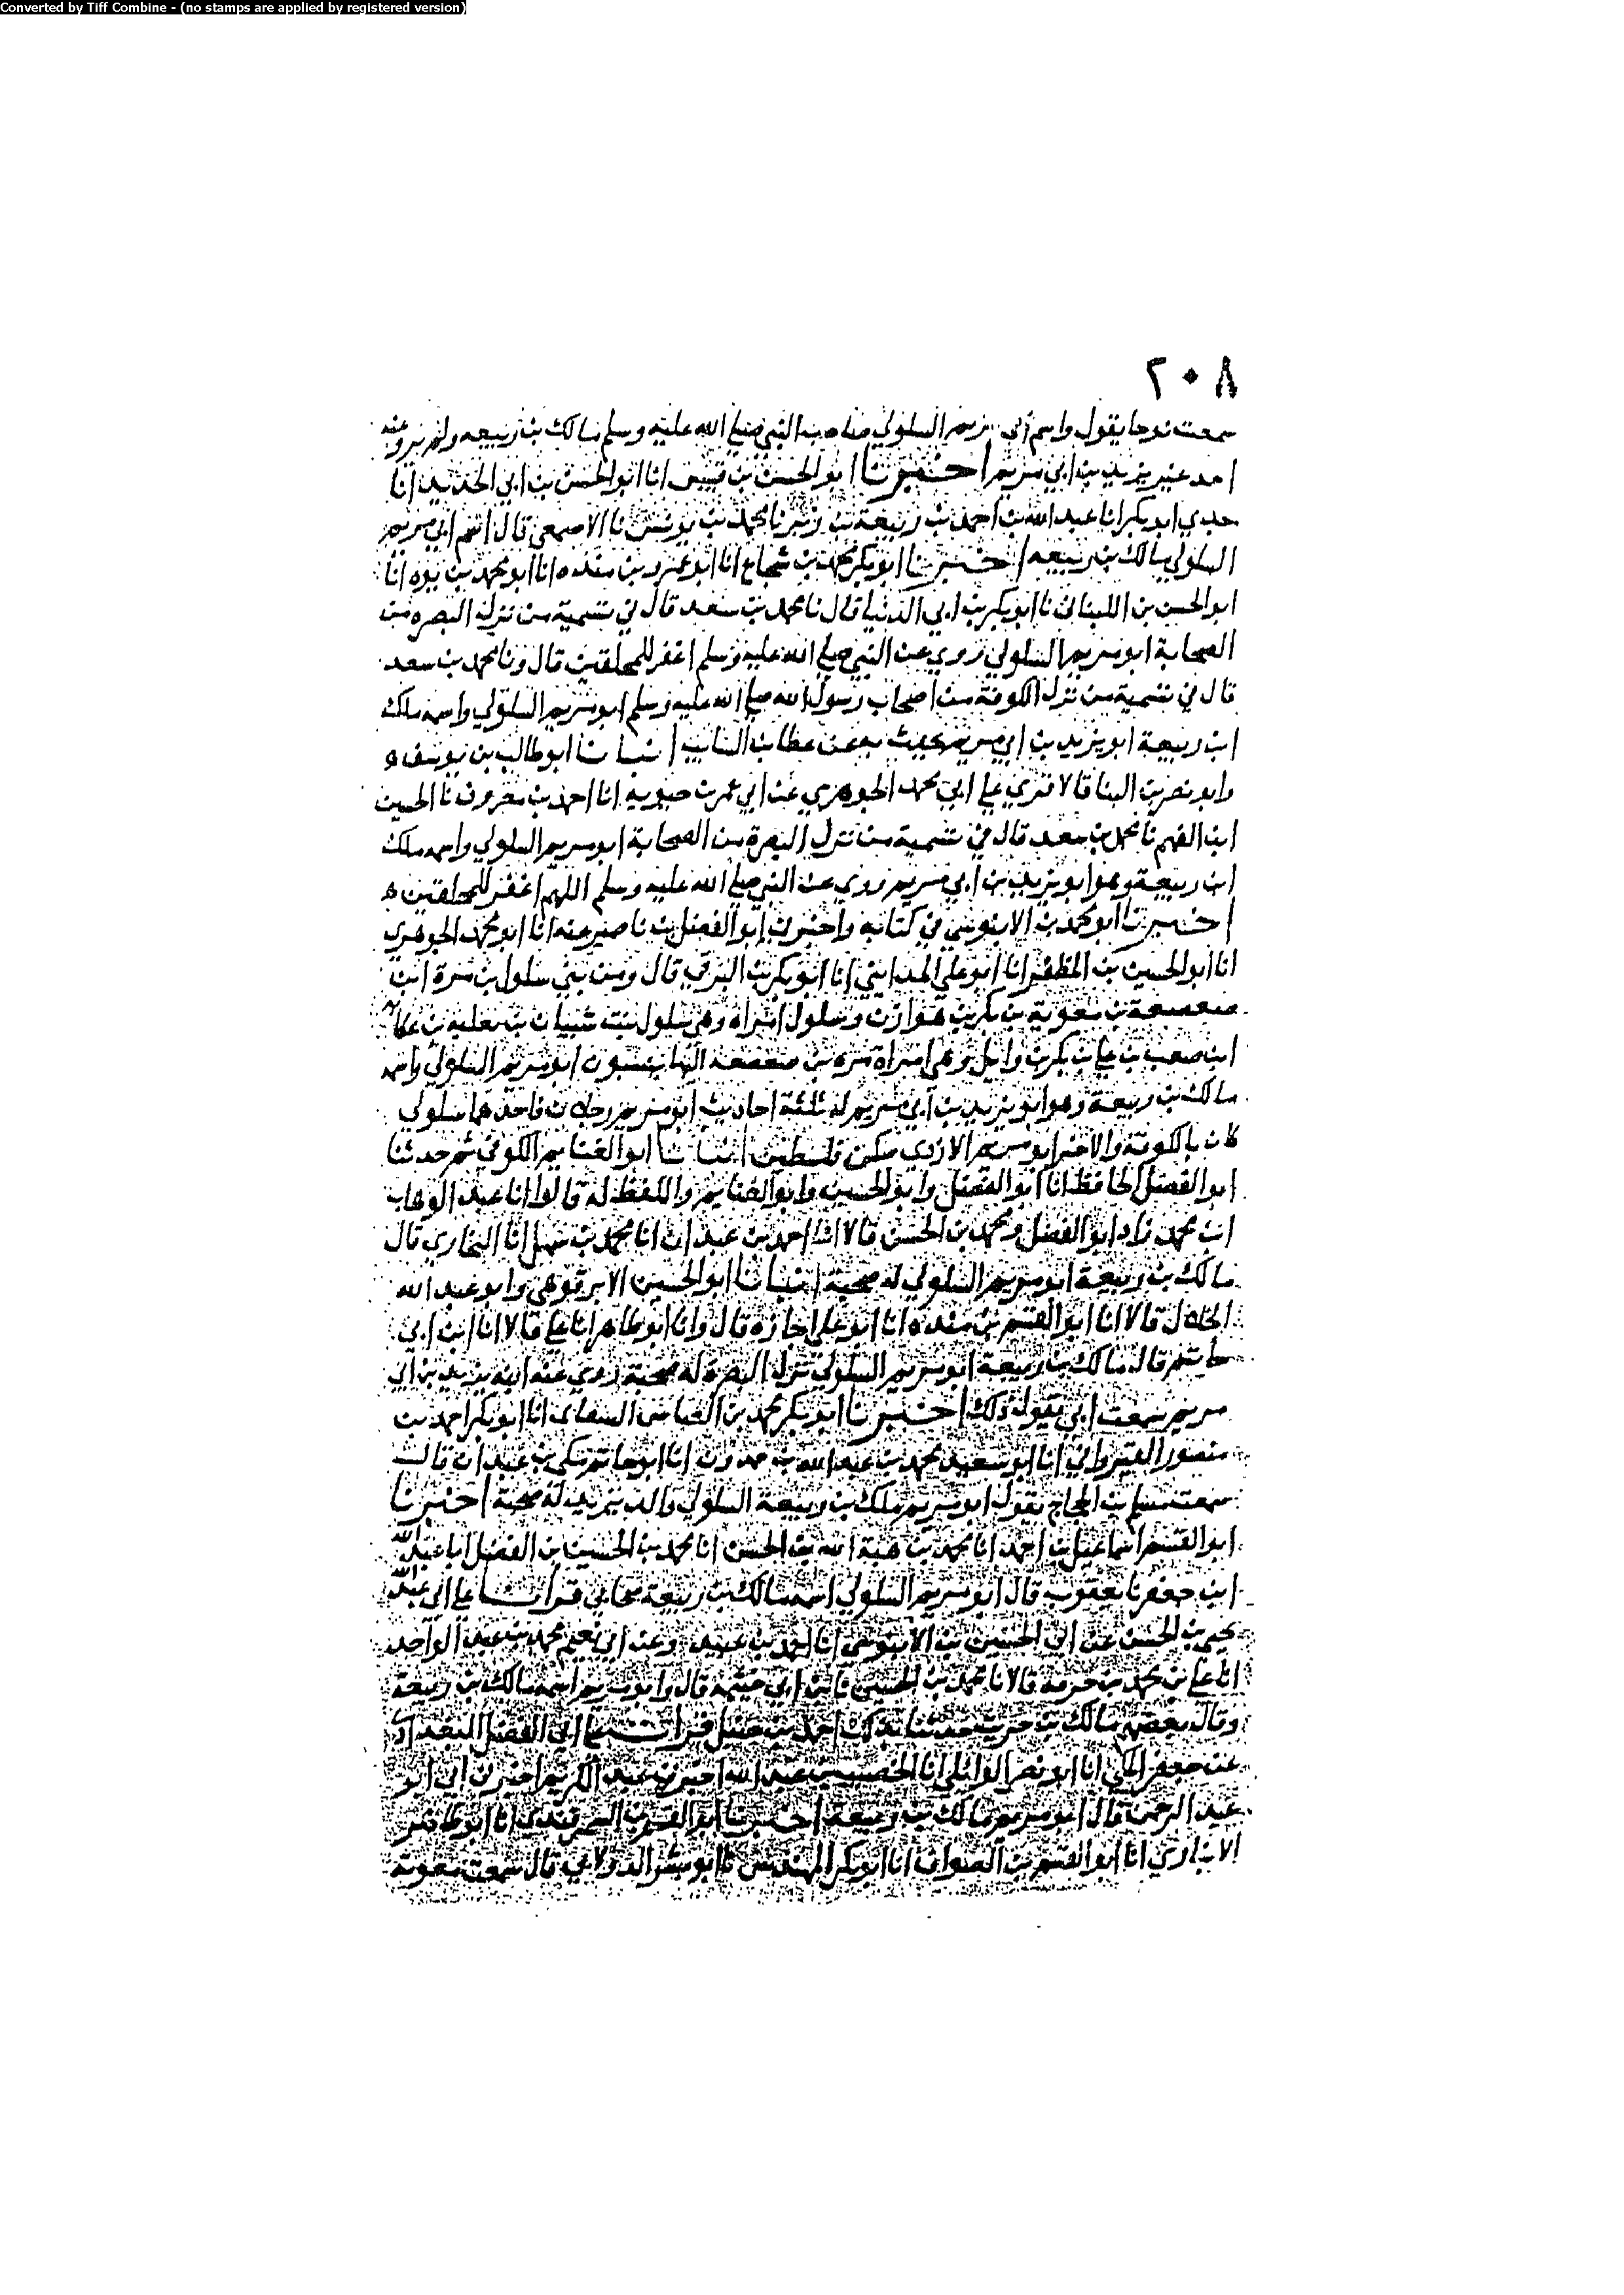 Converted by Tiff Combine - (no stamps are applied by registered version)
٢٠٨
سمعت نوحا يقول واسم أبي مريم السلولي صاحب النبي صلى الله عليه وسلم مالك بن ربيعه ولم يرو عنه
احد غير يزيد بن ابي مريم اخبرنا ابو الحسن بن قبيس انا ابو الحسن بن ابي الحديد انا
جدي ابو بكر انا عبد الله بن احمد بن ربيعة بن زبر نا محمد بن يونس نا الاصمعي قال اسم ابي مريم
السلولي مالك بن ربيعه اخبرنا ابو بكر محمد بن شجاع انا ابو عمرو بن منده انا ابو محمد بن يوه انا
ابو الحسن بن اللبناني نا ابو بكر بن ابي الدنيا قال نا محمد بن سعد قال في تسمية من نزل البصره من
الصحابة ابو مريم السلولي روي عن النبي صلى الله عليه وسلم اغفر للمحلقين قال ونا محمد بن سعد
قال في تسمية من نزل الكوفة من اصحاب رسول الله صلى الله عليه وسلم ابو مريم السلولي واسمه ملك
ابن ربيعة ابو يزيد بن ابي مريم يحدث عن عطا بن السايب انبانا ابو طالب بن يوسف و
وابو نصر بن البنا قالا قري علي ابي محمد الجوهري عن ابي عمر بن حيويه انا احمد بن معروف نا الحسين
ابن الفهم نا محمد بن سعد قال في تسمية من نزل البصرة من الصحابة ابو مريم السلولي واسمه ملك
ابن ربيعة وهو ابو يزيد بن ابي مريم روي عن النبي صلى الله عليه وسلم اللهم اغفر للمحلقين ه
اخبرنا ابو محمد بن الابنوسي في كتابه واخبرني ابو الفضل بن ناصر عنه انا ابو محمد الجوهري
انا ابو الحسين بن المظفر انا ابو علي المدايني انا ابو بكر بن البرقي قال ومن بني سلول بن مرة ابن
صعصعة بن معوية بن بكر بن هوازن وسلول امراه وهي سلول بنت شيبان بن ثعلبه بن عكابه
ابن صعب بن علي بن بكر بن وايل وهي امراة مره بن صعصعه اليها ينسبون ابو مريم السلولي واسمه
مالك بن ربيعة وهو ابو يزيد بن ابي مريم له ثلثة احاديث ابو مريم رجلان فاحدهما سلولي
كان بالكوفة والاخر ابو مريم الازدي سكن فلسطين انبانا ابو الغنايم الكوفي ثم حدثنا
ابو الفضل الحافظ انا ابو الفضل وابو الحسين وابو الغنايم واللفظ له قالوا انا عبد الوهاب
ابن محمد زاد ابو الفضل ومحمد بن الحسن قالا انا احمد بن عبدان انا محمد بن سهل انا البخاري قال
مالك بن ربيعة ابو مريم السلولي له صحبة انبانا ابو الحسين الابرقوهي وابو عبد الله
الخلال قالا انا ابو القسم بن منده انا ابو علي اجازه قال وانا ابو طاهر انا علي قالا انا ابن ابي
حاتم قال مالك بن ربيعة ابو مريم السلولي نزل البصرة له صحبة روي عنه ابنه يزيد بن ابي
مريم سمعت ابي يقول ذلك اخبرنا ابو بكر محمد بن العباس الشقاني انا ابو بكر احمد بن
منصور القيرواني انا ابو سعيد محمد بن عبد الله بن حمدون انا ابو حاتم مكي بن عبدان قال
سمعت مسلم بن الحجاج يقول ابو مريم ملك بن ربيعة السلولي والد يزيد له صحبة اخبرنا
ابو القسم اسماعيل بن احمد انا محمد بن هبة الله بن الحسن انا محمد بن الحسين بن الفضل انا عبد الله
ابن جعفر نا يعقوب قال ابو مريم السلولي اسمه مالك بن ربيعة صحابي قرات علي ابي عبد الله
يحيى بن الحسن عن ابي الحسين بن الابنوسي انا احمد بن عبيد وعن ابي نعيم محمد بن عبد الواحد
انا علي بن محمد بن خزفة قالا نا محمد بن الحسين نا ابن ابي خيثمة قال وابو مريم اسمه مالك بن ربيعة
وقال بعضهم مالك بن خريت حدثنا بذلك احمد بن حنبل قرات علي ابي الفضل البغدادي
عن جعفر المكي انا ابو نصر الوائلي انا الخصيب بن عبد الله اخبرني عبد الكريم اخبرني ابي ابو
عبد الرحمن قال ابو مريم مالك بن ربيعة اخبرنا ابو القسم بن السمرقندي انا ابو طاهر
الانباري انا ابو القسم بن الصواف انا ابو بكر المهندس نا ابو بشر الدولابي قال سمعت معوية